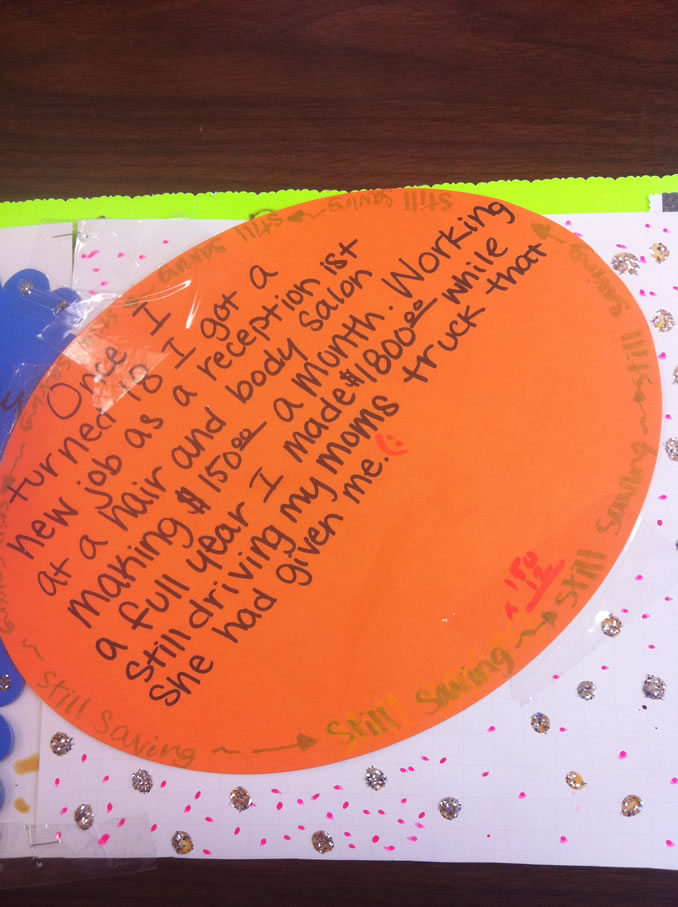 Once I
turned 18 I got a
new job as a receptionist
at a hair and body salon
making $150.00 a month. Working
a full year I made $1800.00 while
still driving my moms truck that
she had given me.
still saving
still saving
still saving
still saving
still saving
still saving
150
12